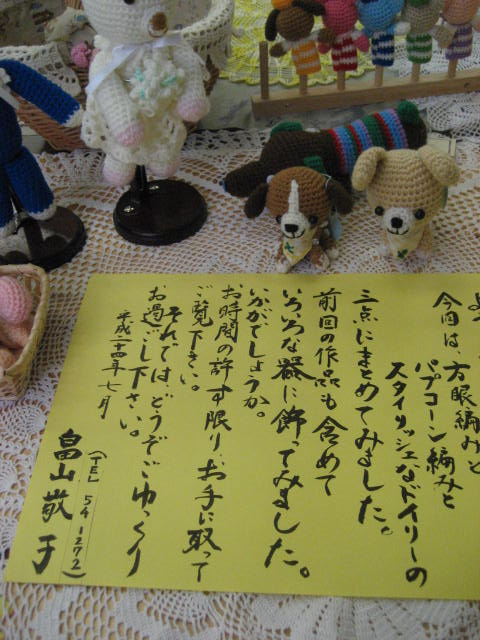 今回は、方眼編みと
パプコーン編みと
スタイリッシュなドイリーの
三点にまとめてみました。
前回の作品も含めて
いろいろな器に飾ってみました。
いかがでしょうか。
お時間の許す限り、お手に取って
ご覧下さい。
それではどうぞごゆっくり
お過ごし下さい。
平成二十四年七月
畠山敬子
(TEL 54-1272)